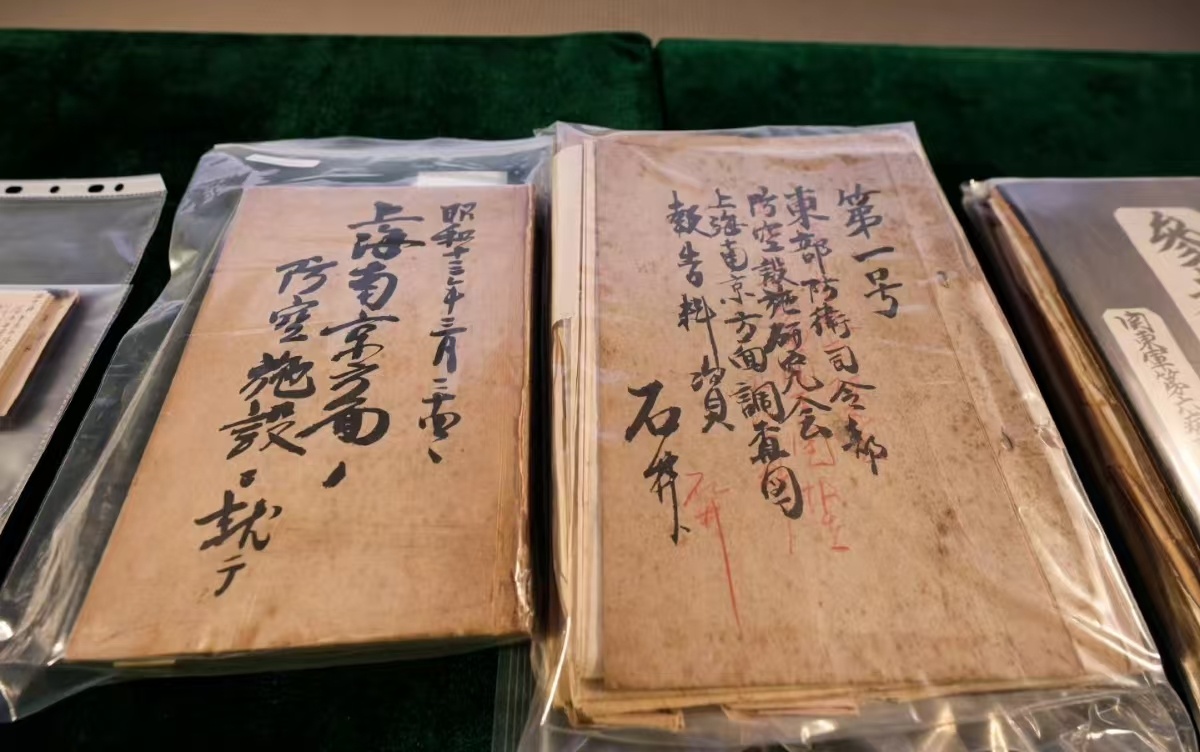 昭和十三年三月
上海南京方面ノ
防空施設ニ就テ
第一号
東部防衛司令部
防空設施研究会
上海南京方面調査団
報告料資
石井
参
関東軍第六